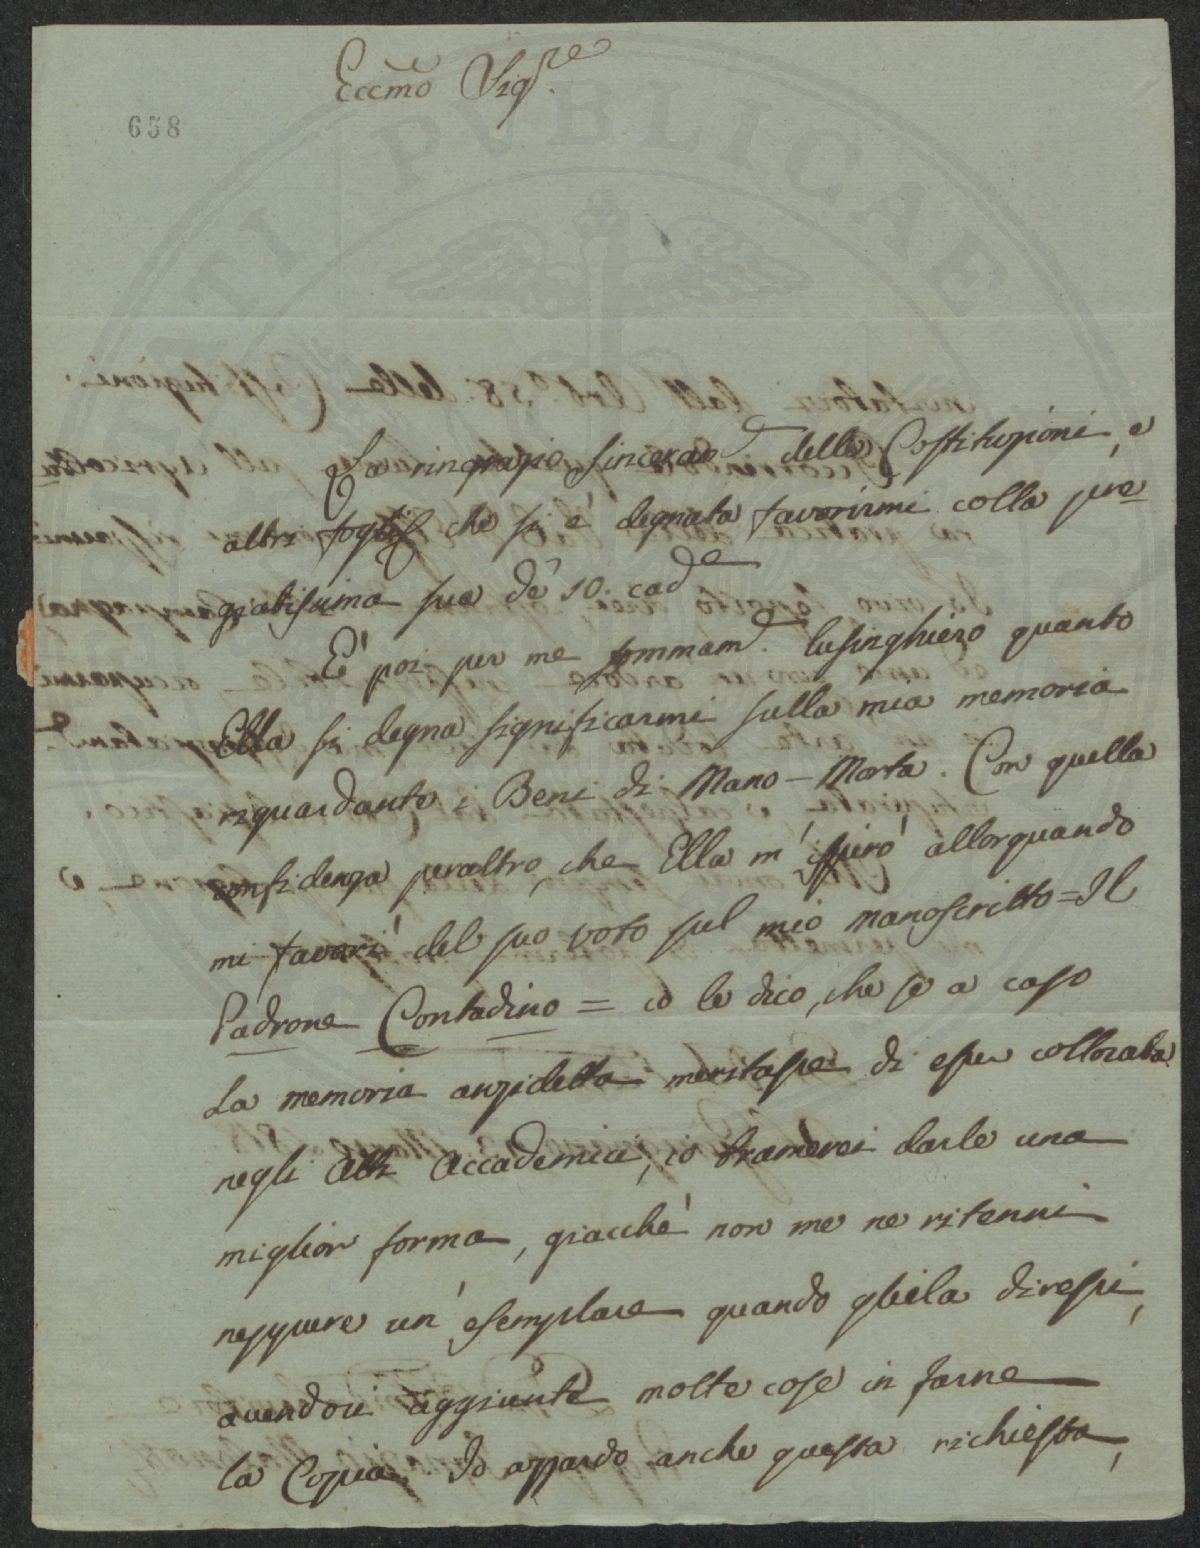 Eccmo Sigre
658
La ringrazio sinceramte delle Costituzioni, e
altri foglj che si è degnata favorirmi colla pre=
giatissima sua dè 10. cade
E' poi per me sommame. lusinghiero quanto
Ella si degna significarmi sulla mia memoria
riguardante i Beni di Mano-Morta. Con quella
confidenza peraltro, che Ella m'ispirò allorquando
mi favorì del suo voto sul mio manoscritto = Il
Padrone Contadino = io le dico, che se a caso
La memoria anzidetta meritasse di esser collocata
negli Atti Accademici, io bramerei darle una
miglior forma, giacchè non me ne ritenni
neppure un' esemplare quando gliela diressi,
avendovi aggiunte molte cose in farne
la Copia. Io azzardo anche questa richiesta,